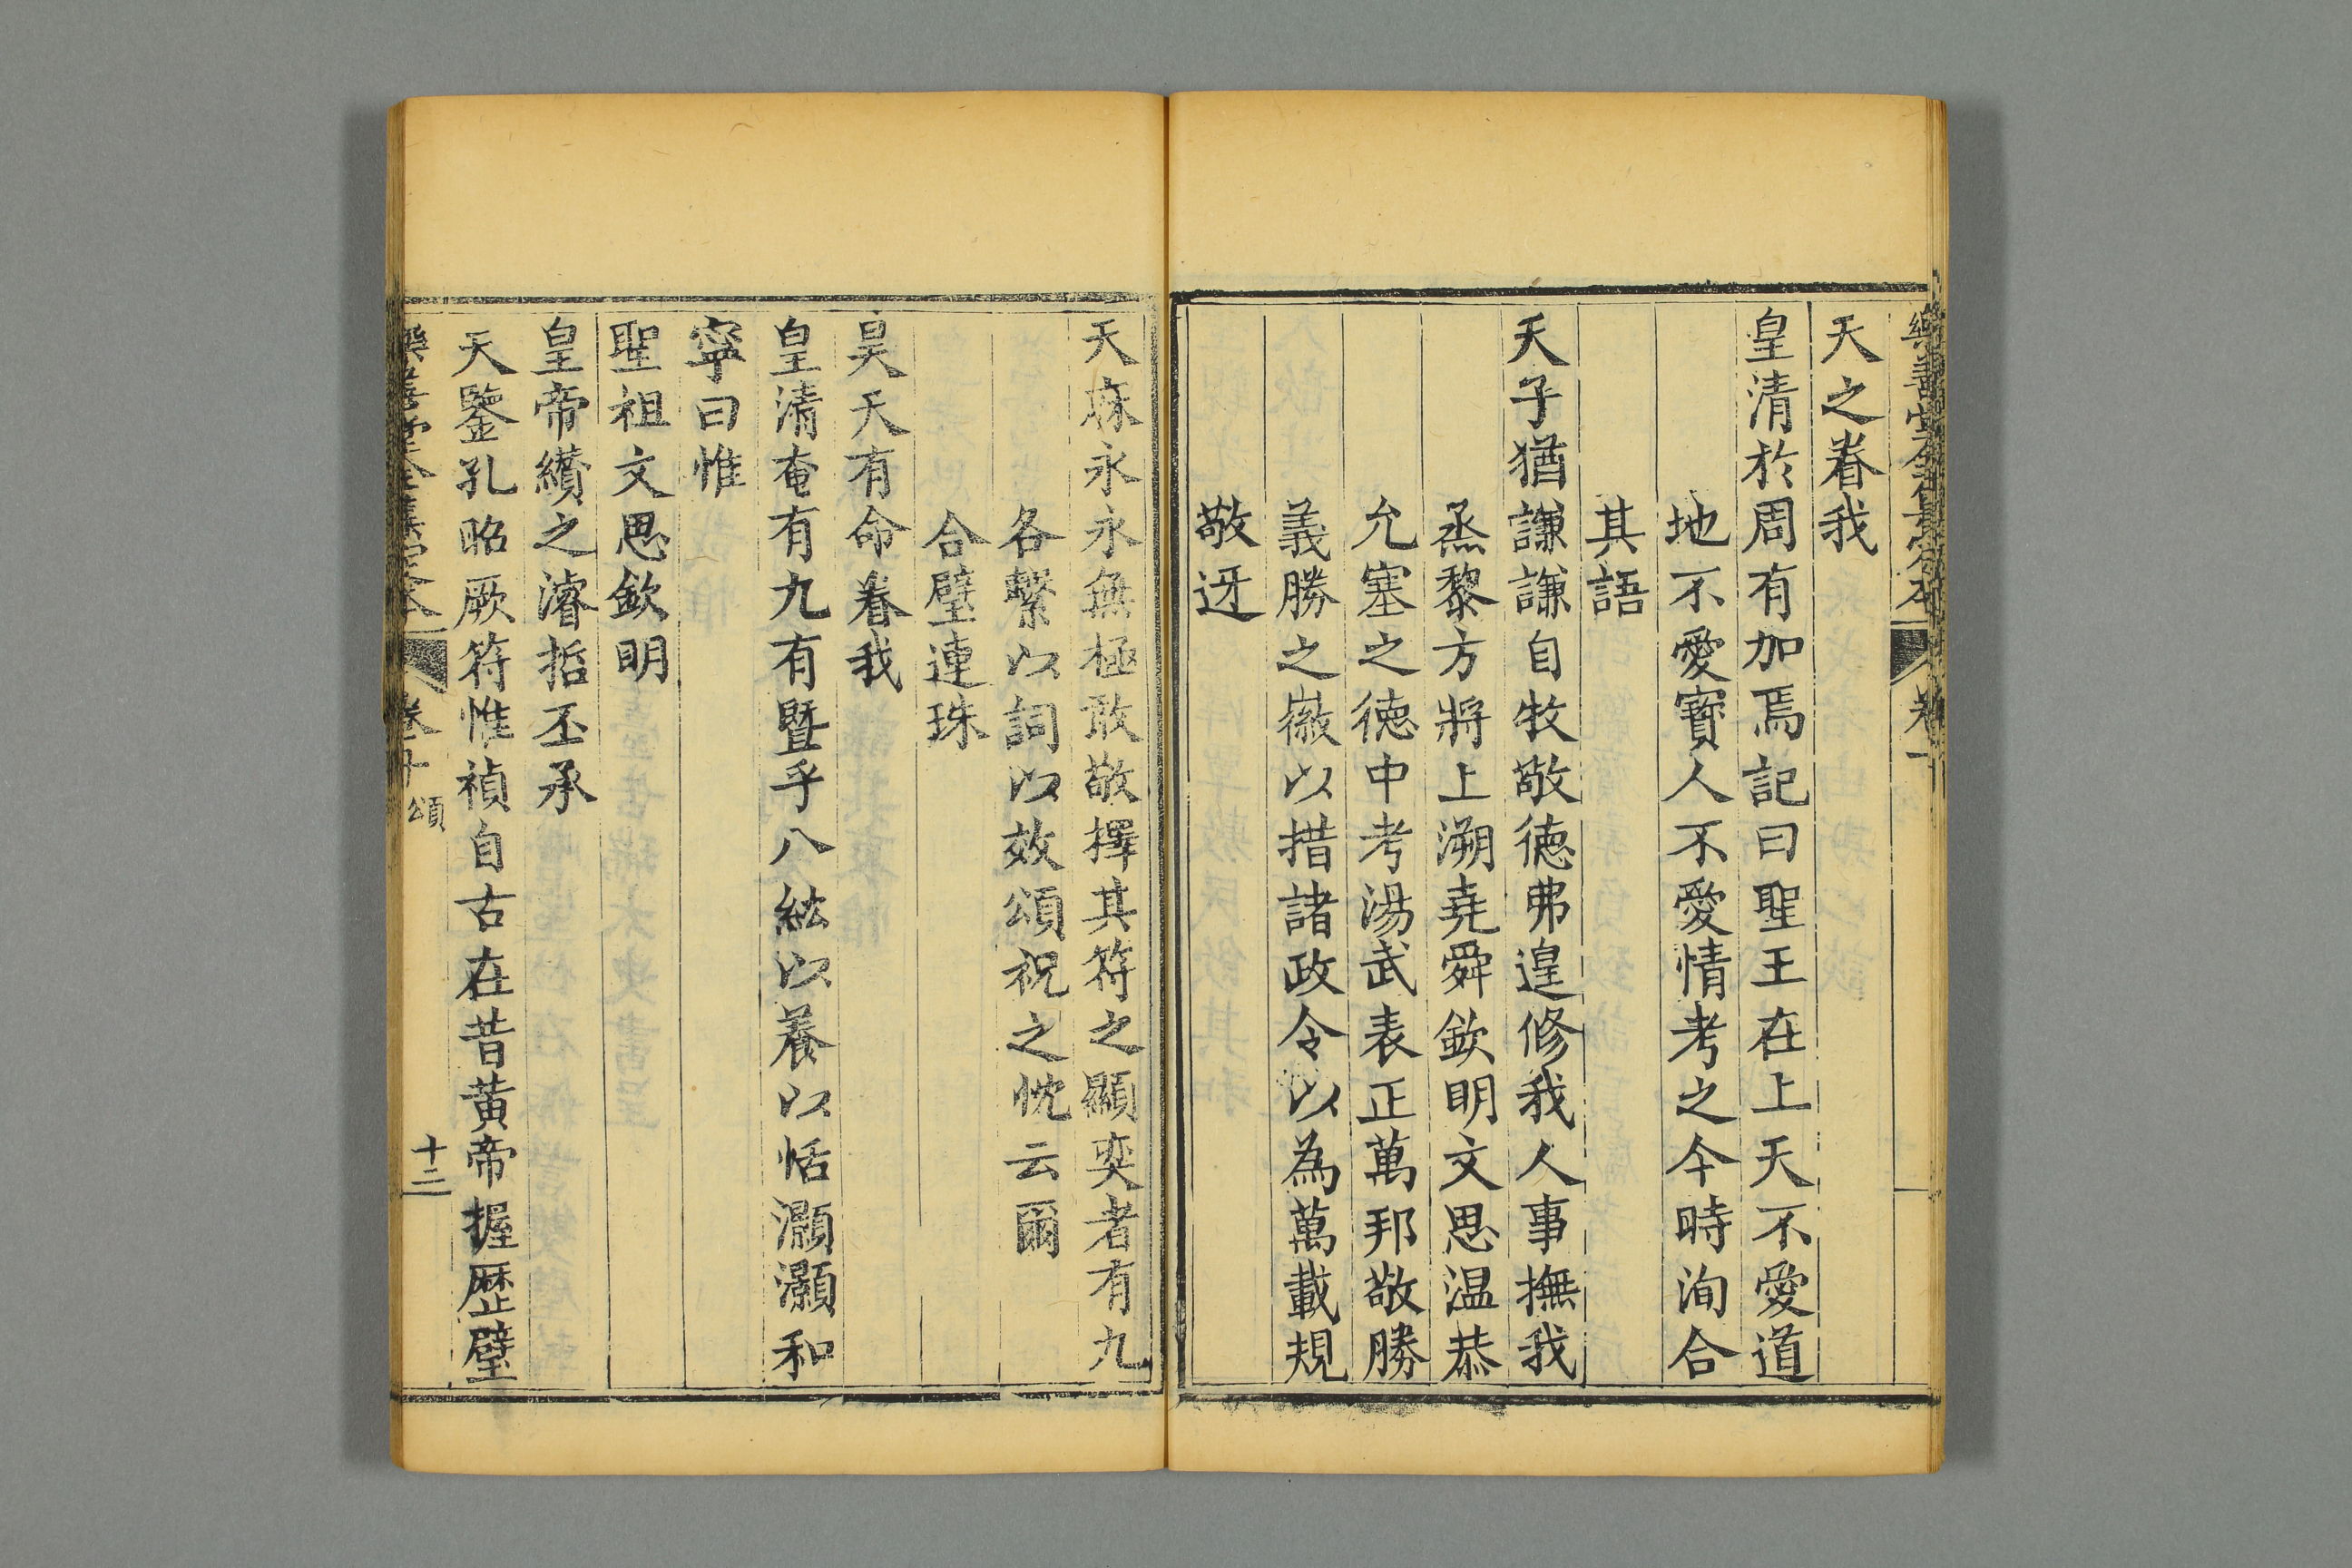 天之眷我
皇清於周有加焉記曰聖王在上天不愛道
地不愛寶人不愛情考之今時洵合
其語
天子猶謙謙自牧敬德弗遑修我人事撫我
烝黎方將上溯堯舜欽明文思温恭
允塞之德中考湯武表正萬邦敬勝
義勝之徽以措諸政令以為萬載規
敬迓
天庥永永無極敢敬擇其符之顯奕者有九
各繫以詞以效頌祝之忱云爾
合璧連珠
昊天有命眷我
皇清奄有九有暨乎八紘以養以恬灝灝和
寧曰惟
聖祖文思欽明
皇帝纘之濬哲丕承
天鑒孔昭厥符惟禎自古在昔黄帝握歴璧
樂善堂全集定本
卷十
頌
十二